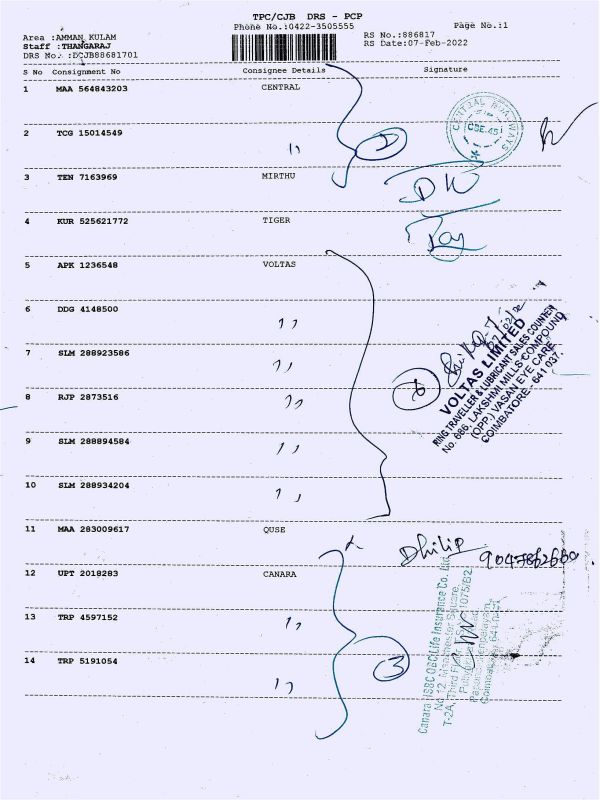 TPC/CJB DRS - PCP
Phone No.:0422-3505555
Page No.:1
Area :AMMAN KULAM
RS No.:886817
Staff :THANGARAJ
RS Date:07-Feb-2022
DRS No. :DCJB88681701
S No Consignment No Consignee Details Signature
1 MAA 564843203 CENTRAL
CENTRAL ROADWAYS
CBE.45
2 TCG 15014549 ,, 2
3 TEN 7163969 MIRTHU
4 KUR 525621772 TIGER
5 APK 1236548 VOLTAS
6 DDG 4148500 ,,
7 SLM 288923586 ,,
8 RJP 2873516 ,,
9 SLM 288894584 ,,
10 SLM 288934204 ,,
6
VOLTAS LIMITED
RING TRAVELLER & LUBRICANT SALES COUNTER
No. 686, LAKSHMI MILLS COMPOUND
(OPP.) VASAN EYE CARE
COIMBATORE - 641 037.
11 MAA 283009617 QUSE Dhilip
12 UPT 2018283 CANARA
13 TRP 4597152 ,,
14 TRP 5191054 ,,
3
Canara HSBC OBC Life Insurance Co. Ltd